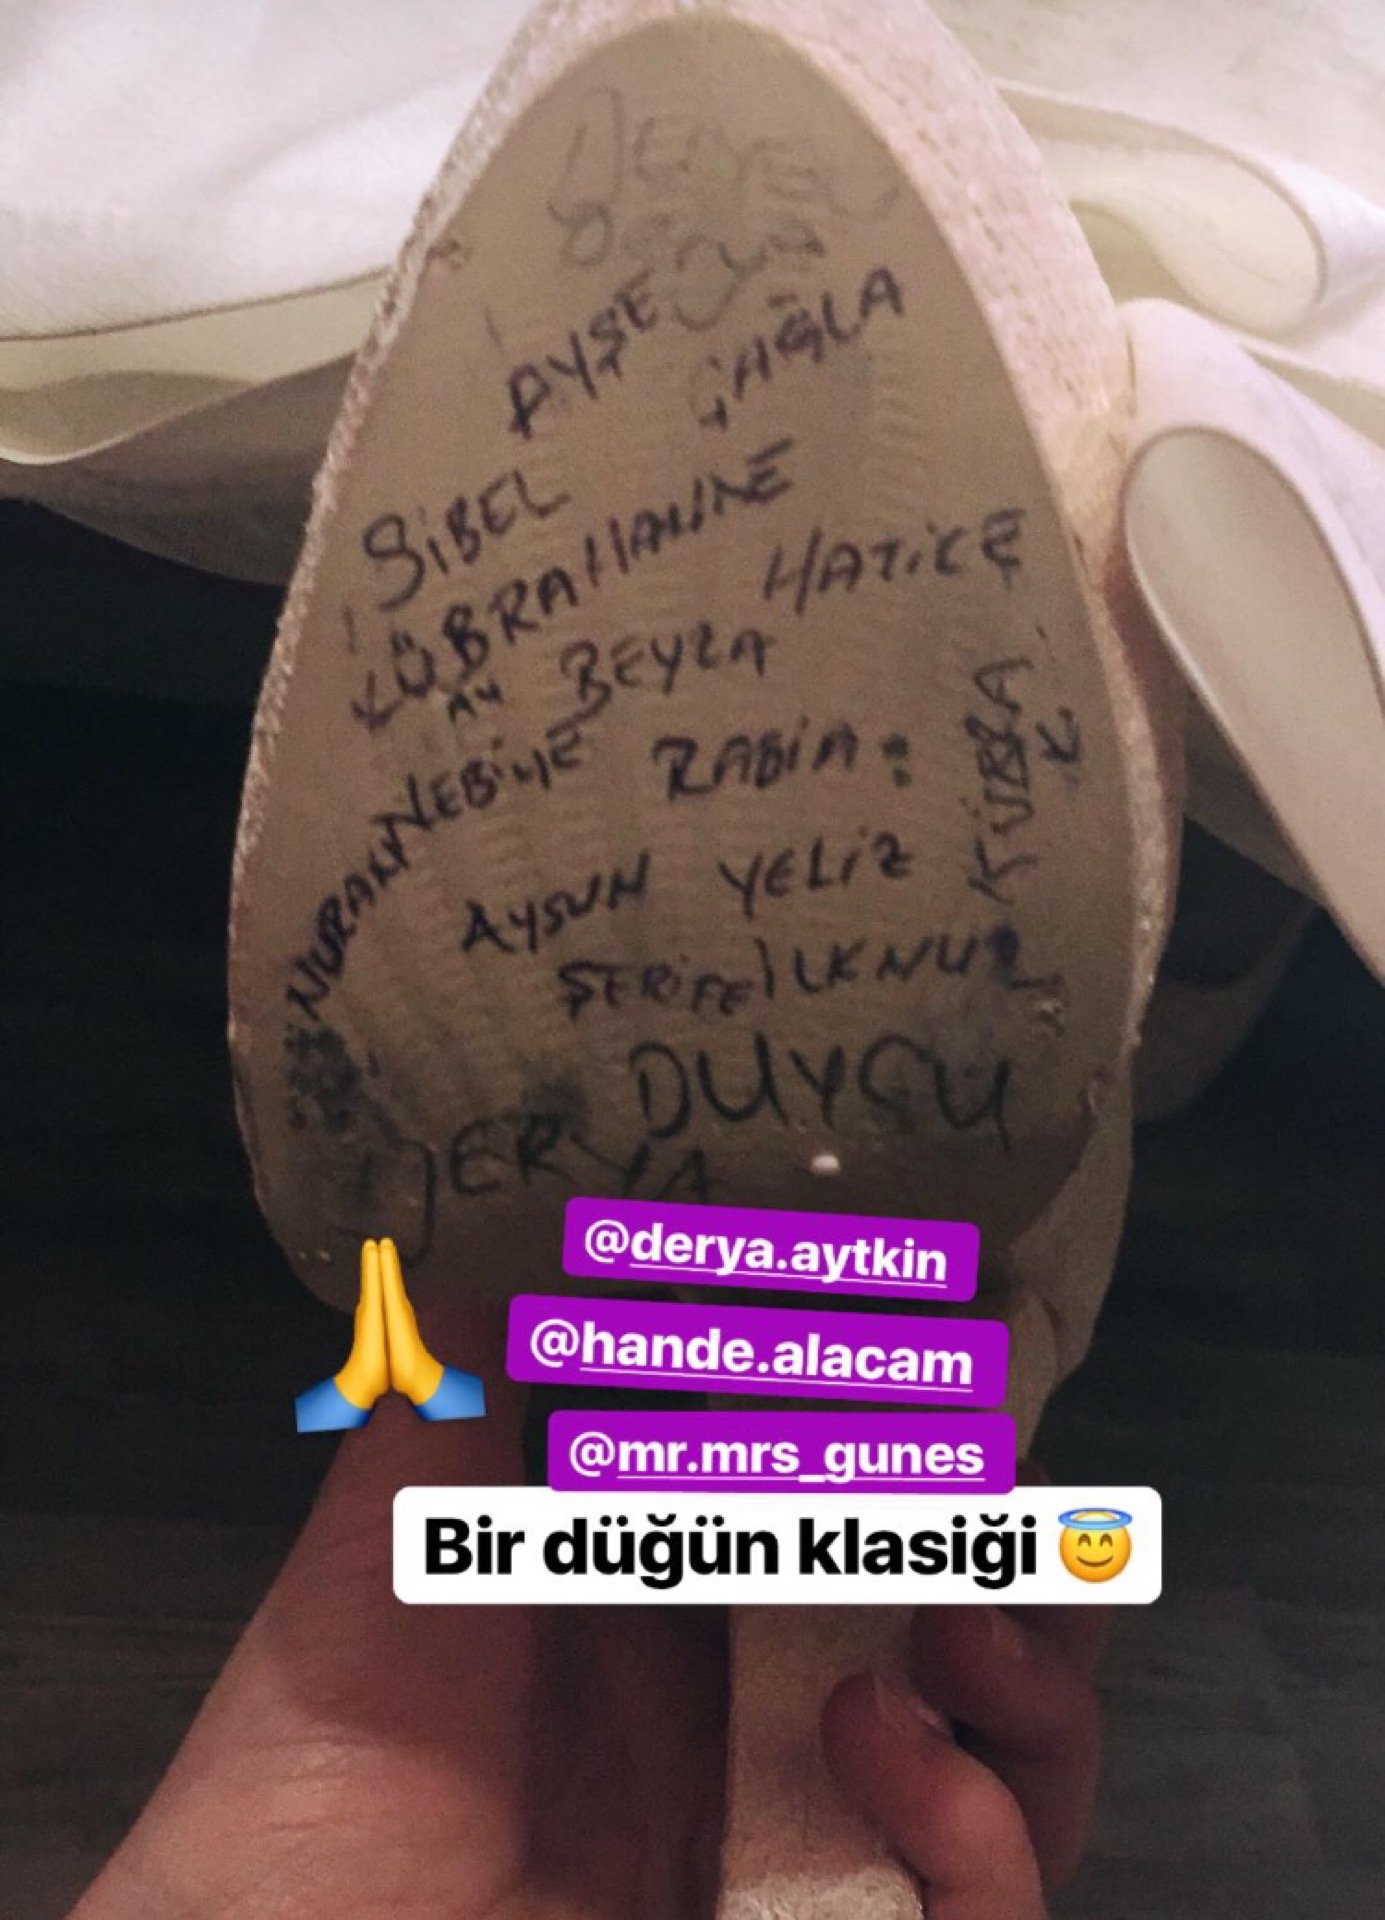 AYŞE
ÇAĞLA
SİBEL
KÜBRA
HATİCE
AY
BEYZA
NEBİYE
RABİA
KÜBRA
K
NURAN
AYSUN YELİZ
ŞERİFE İLKNUR
DUYGU
DERYA
@derya.aytkin
@hande.alacam
@mr.mrs_gunes
Bir düğün klasiği 😇